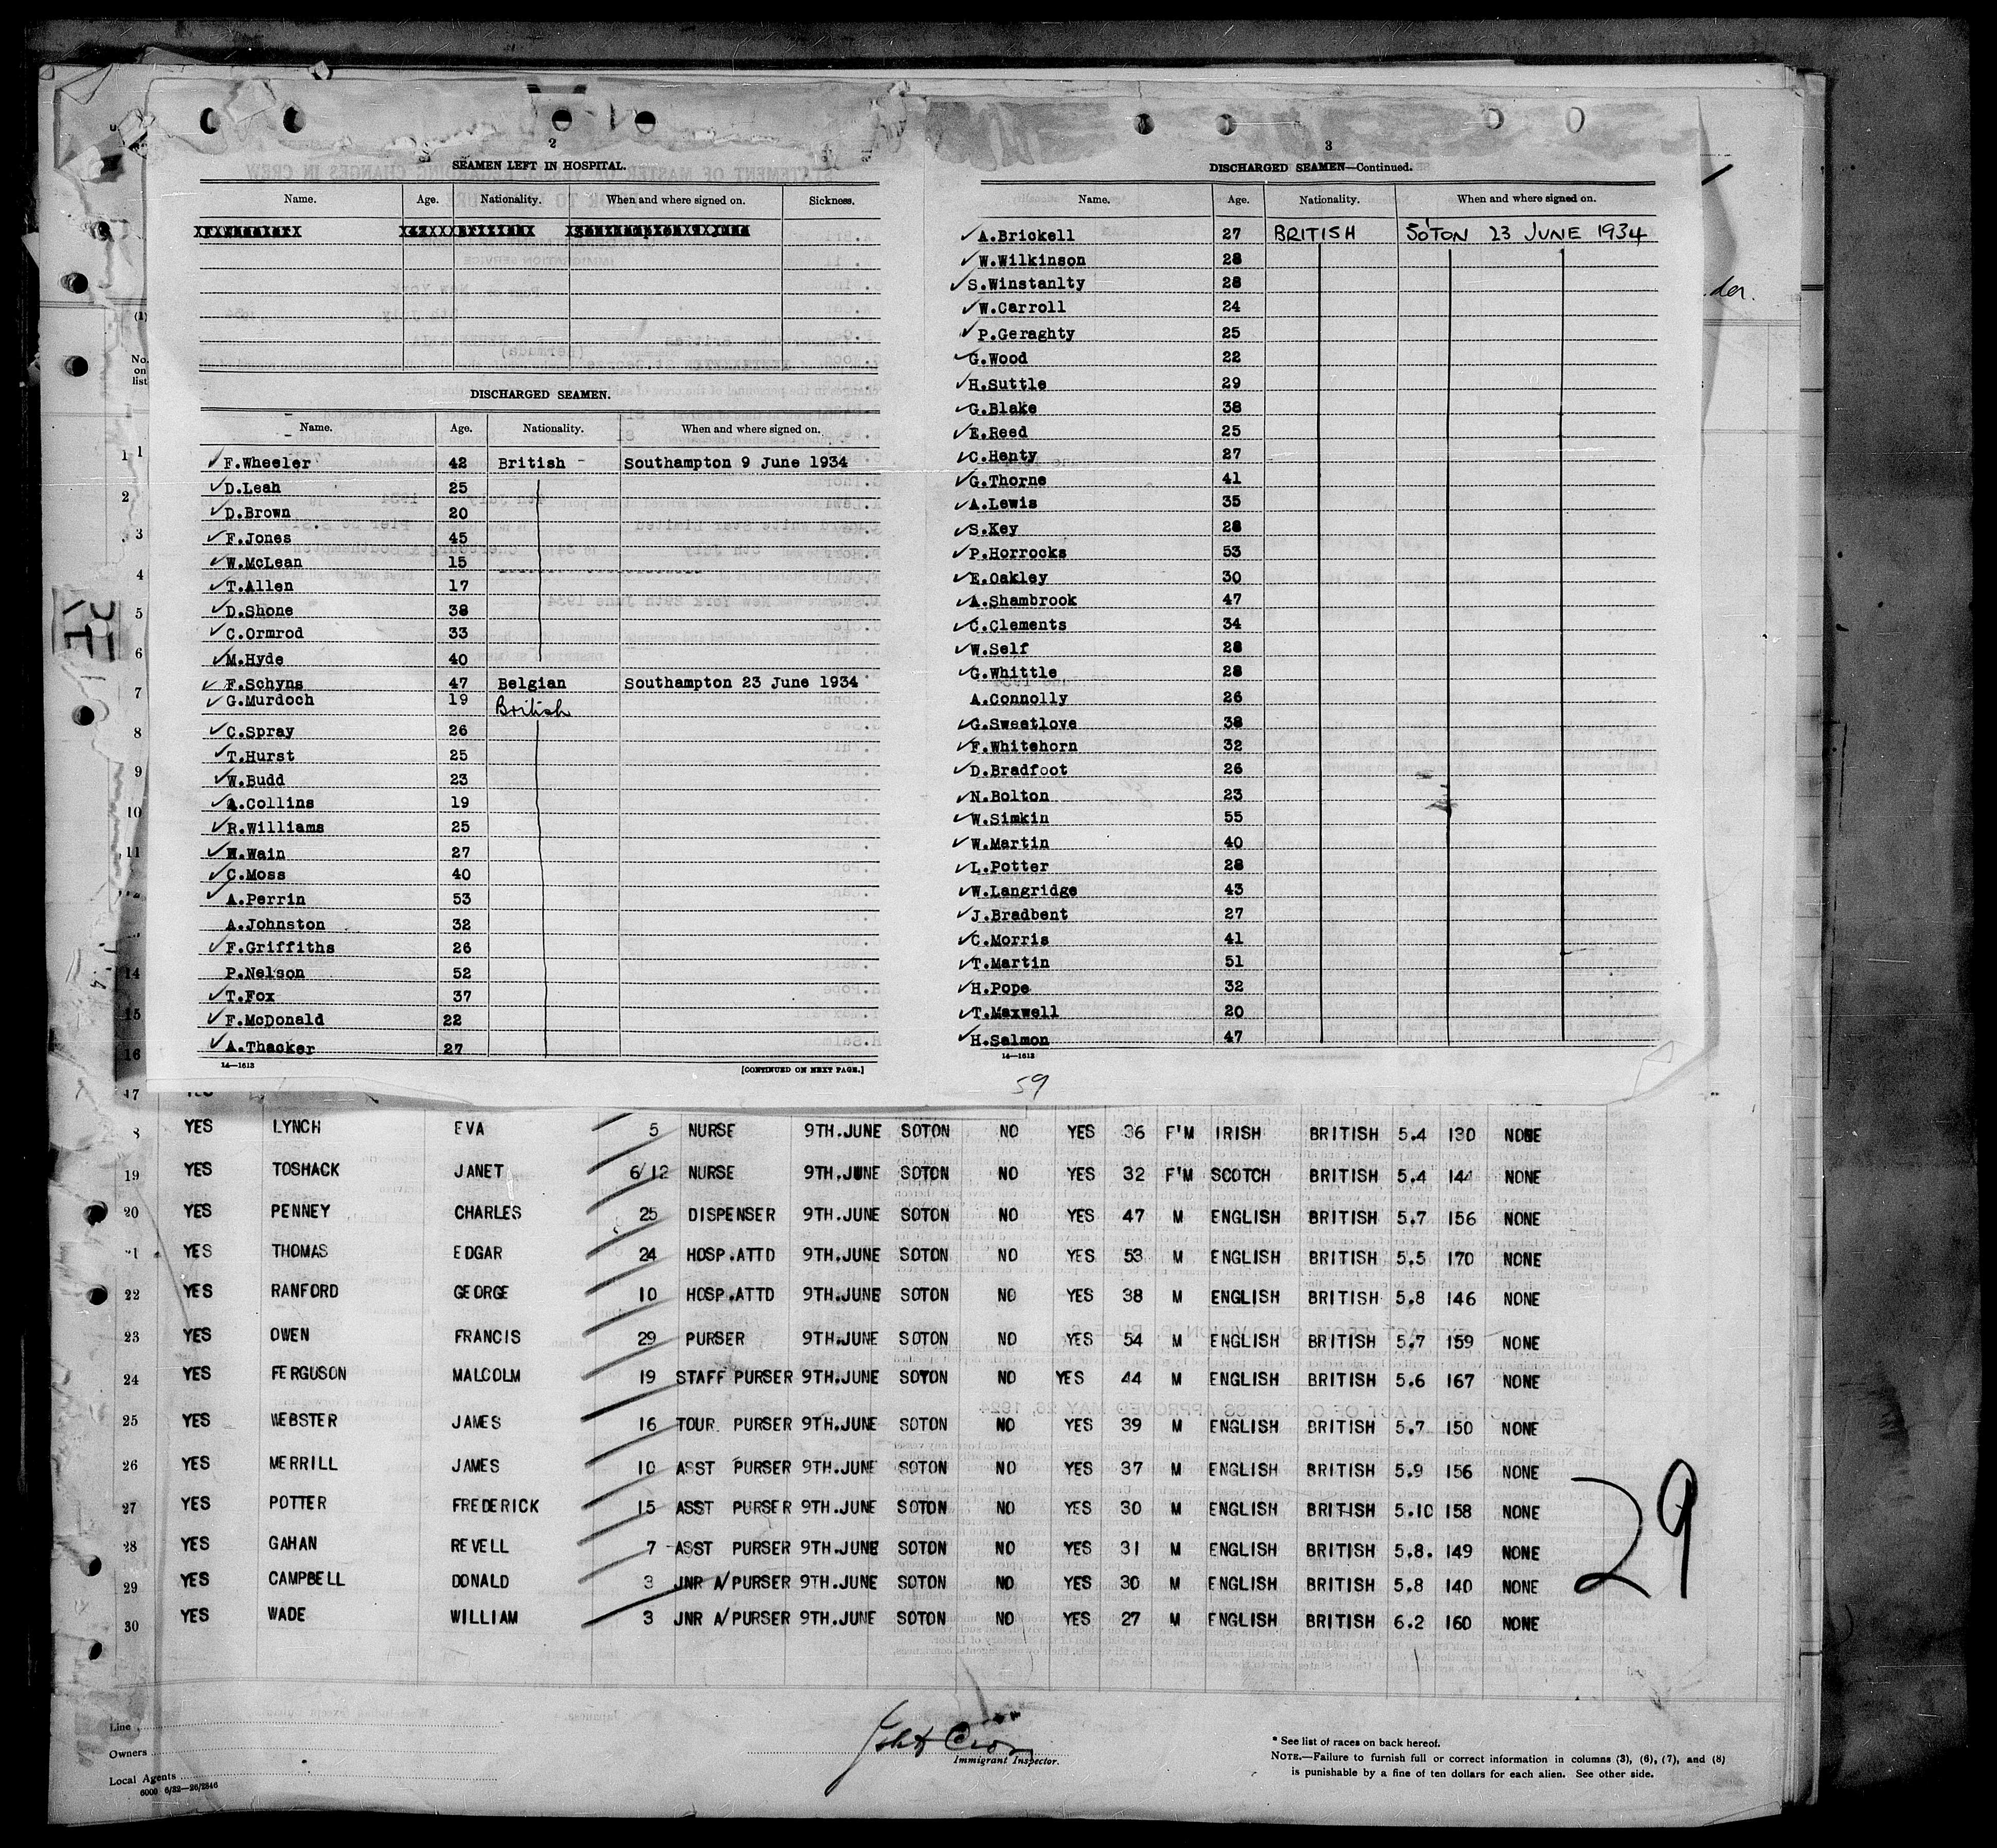 2
SEAMEN LEFT IN HOSPITAL.
Name. Age. Nationality. When and where signed on. Sickness.
DISCHARGED SEAMEN.
Name. Age. Nationality. When and where signed on.
F.Wheeler 42 British - Southampton 9 June 1934
D.Leah 25
D.Brown 20
F.Jones 45
W.McLean 15
T.Allen 17
D.Shone 38
C.Ormrod 33
M.Hyde 40
F.Schyns 47 Belgian Southampton 23 June 1934
G.Murdoch 19 British
C.Spray 26
T.Hurst 25
W.Budd 23
A.Collins 19
R.Williams 25
H.Wain 27
C.Moss 40
A.Perrin 53
A.Johnston 32
F.Griffiths 26
P.Nelson 52
T.Fox 37
F.McDonald 22
A.Thacker 27
14—1613
[CONTINUED ON NEXT PAGE.]
3
DISCHARGED SEAMEN—Continued.
Name. Age. Nationality. When and where signed on.
A.Brickell 27 BRITISH SOTON 23 JUNE 1934
W.Wilkinson 28
S.Winstanlty 28
W.Carroll 24
P.Geraghty 25
G.Wood 22
H.Suttle 29
G.Blake 38
E.Reed 25
C.Henty 27
G.Thorne 41
A.Lewis 35
S.Key 28
P.Horrocks 53
E.Oakley 30
A.Shambrook 47
C.Clements 34
W.Self 28
G.Whittle 28
A.Connolly 26
G.Sweetlove 38
F.Whitehorn 32
D.Bradfoot 26
N.Bolton 23
W.Simkin 55
W.Martin 40
L.Potter 28
W.Langridge 43
J.Bradbent 27
C.Morris 41
T.Martin 51
H.Pope 32
T.Maxwell 20
H.Salmon 47
14—1613
59
der.
No. on list
1
2
3
4
5
6
7
8
9
10
11
14
15
16
17 YES
8 YES LYNCH EVA 5 NURSE 9TH.JUNE SOTON NO YES 36 F'M IRISH BRITISH 5.4 130 NONE
19 YES TOSHACK JANET 6/12 NURSE 9TH.JUNE SOTON NO YES 32 F'M SCOTCH BRITISH 5.4 144 NONE
20 YES PENNEY CHARLES 25 DISPENSER 9TH.JUNE SOTON NO YES 47 M ENGLISH BRITISH 5.7 156 NONE
21 YES THOMAS EDGAR 24 HOSP.ATTD 9TH.JUNE SOTON NO YES 53 M ENGLISH BRITISH 5.5 170 NONE
22 YES RANFORD GEORGE 10 HOSP.ATTD 9TH.JUNE SOTON NO YES 38 M ENGLISH BRITISH 5.8 146 NONE
23 YES OWEN FRANCIS 29 PURSER 9TH.JUNE SOTON NO YES 54 M ENGLISH BRITISH 5.7 159 NONE
24 YES FERGUSON MALCOLM 19 STAFF PURSER 9TH.JUNE SOTON NO YES 44 M ENGLISH BRITISH 5.6 167 NONE
25 YES WEBSTER JAMES 16 TOUR. PURSER 9TH.JUNE SOTON NO YES 39 M ENGLISH BRITISH 5.7 150 NONE
26 YES MERRILL JAMES 10 ASST PURSER 9TH.JUNE SOTON NO YES 37 M ENGLISH BRITISH 5.9 156 NONE
27 YES POTTER FREDERICK 15 ASST PURSER 9TH.JUNE SOTON NO YES 30 M ENGLISH BRITISH 5.10 158 NONE
28 YES GAHAN REVELL 7 ASST PURSER 9TH.JUNE SOTON NO YES 31 M ENGLISH BRITISH 5.8. 149 NONE
29 YES CAMPBELL DONALD 3 JNR A/PURSER 9TH.JUNE SOTON NO YES 30 M ENGLISH BRITISH 5.8 140 NONE
30 YES WADE WILLIAM 3 JNR A/PURSER 9TH.JUNE SOTON NO YES 27 M ENGLISH BRITISH 6.2 160 NONE
29
Line
Owners
Local Agents
6000 6/32—26/2846
Immigrant Inspector.
* See list of races on back hereof.
NOTE.—Failure to furnish full or correct information in columns (3), (6), (7), and (8)
is punishable by a fine of ten dollars for each alien. See other side.